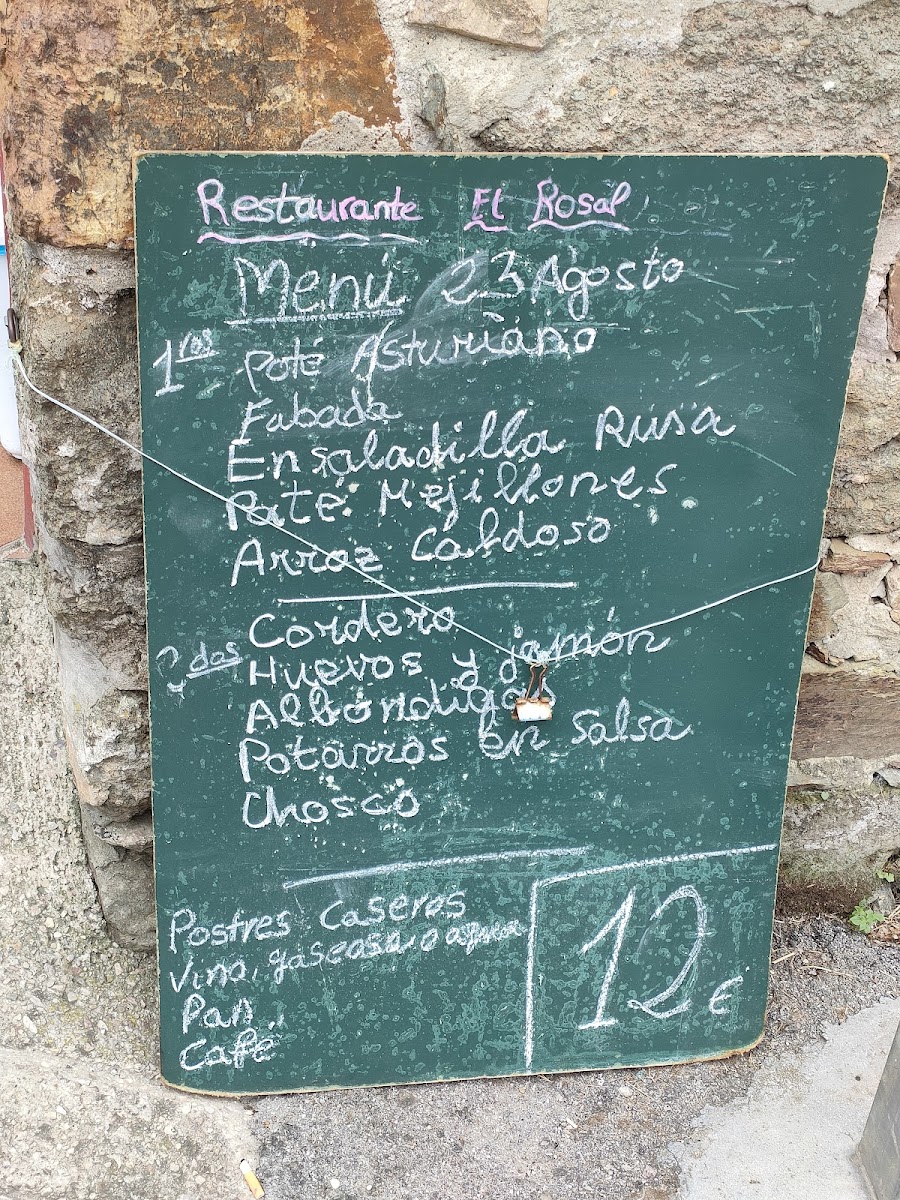 Restaurante El Rosal
Menú 23 Agosto
1ros
Pote Asturiano
Fabada
Ensaladilla Rusa
Paté Mejillones
Arroz Caldoso
2dos
Cordero
Huevos y jamón
Albóndigas
Potarros en Salsa
Chosco
Postres Caseros
Vino, gaseosa o agua
Pan
Café
12 €